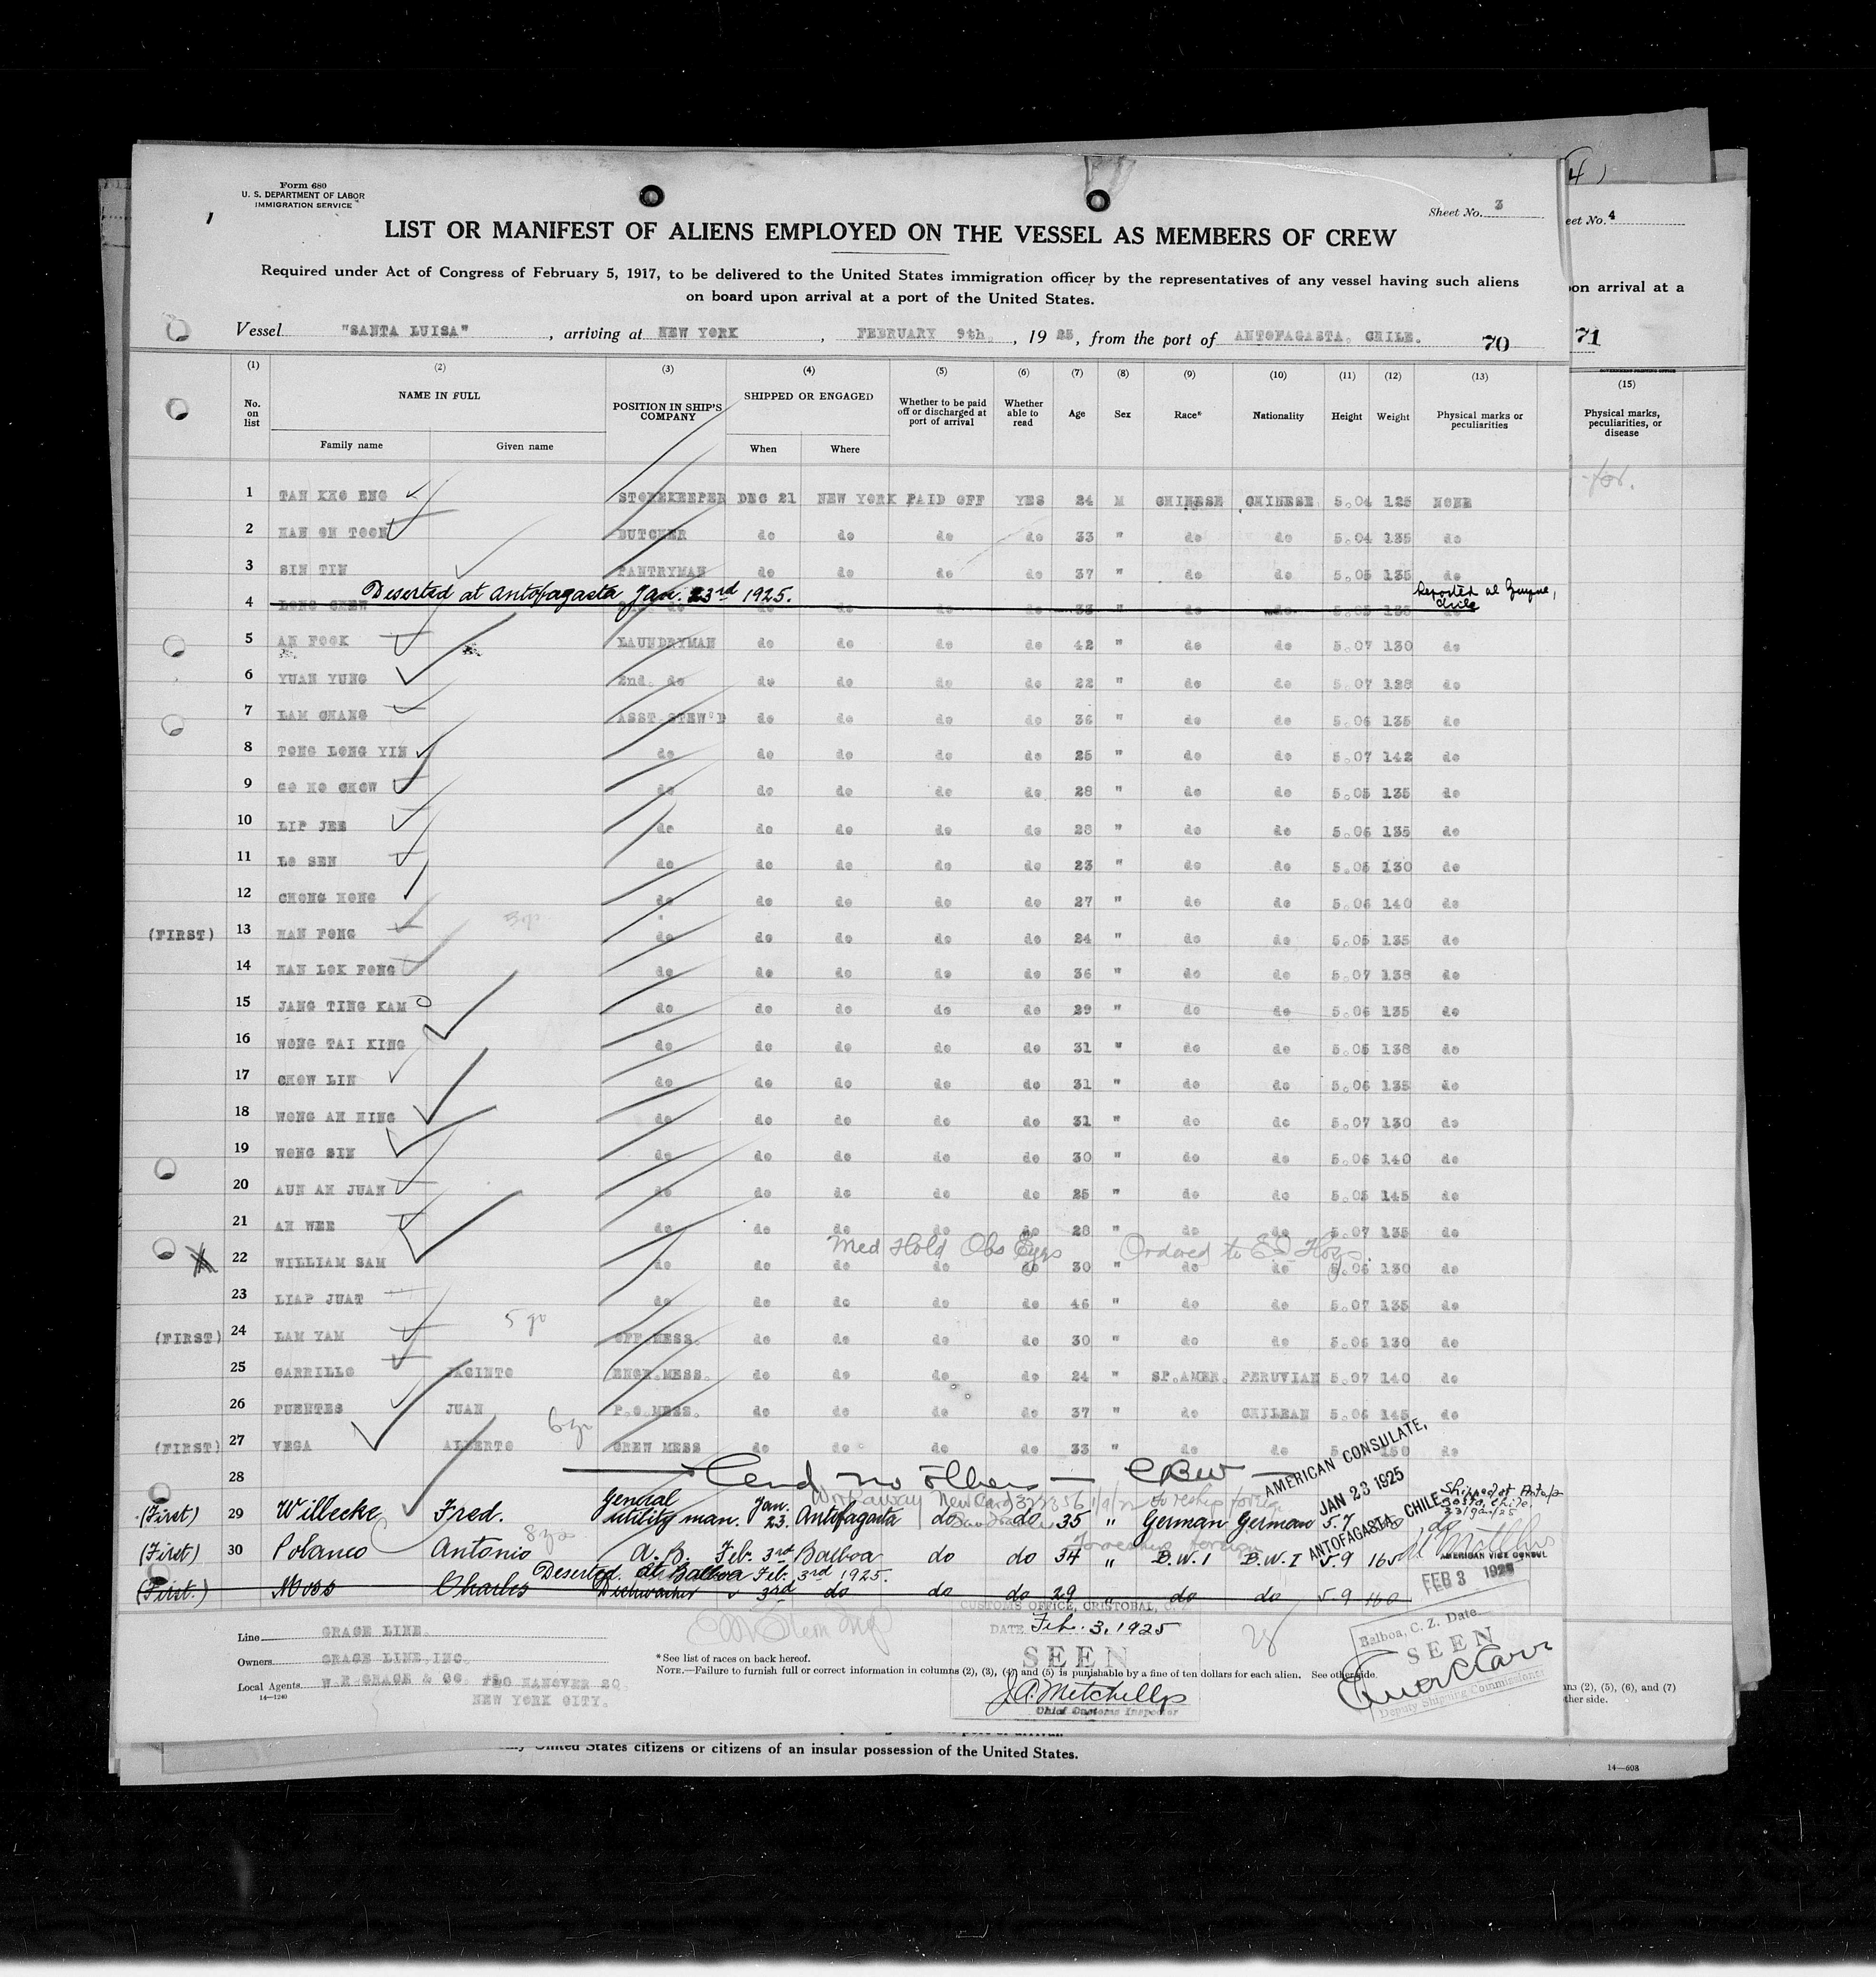 4)
Form 680
U. S. DEPARTMENT OF LABOR
IMMIGRATION SERVICE
Sheet No. 3
eet No. 4
LIST OR MANIFEST OF ALIENS EMPLOYED ON THE VESSEL AS MEMBERS OF CREW
Required under Act of Congress of February 5, 1917, to be delivered to the United States immigration officer by the representatives of any vessel having such aliens
on board upon arrival at a port of the United States.
on arrival at a
Vessel "SANTA LUISA", arriving at NEW YORK, FEBRUARY 9th, 1925, from the port of ANTOFAGASTA, CHILE. 70
71
(1) (2) (3) (4) (5) (6) (7) (8) (9) (10) (11) (12) (13) (15)
No. on list NAME IN FULL Family name Given name POSITION IN SHIP'S COMPANY SHIPPED OR ENGAGED When Where Whether to be paid off or discharged at port of arrival Whether able to read Age Sex Race* Nationality Height Weight Physical marks or peculiarities
Physical marks, peculiarities, or disease
1 TAN KHO ENG STOREKEEPER DEC 21 NEW YORK PAID OFF YES 24 M CHINESE CHINESE 5.04 125 NONE
2 HAN ON TOON BUTCHER do do do do 33 " do do 5.04 135 do
3 SIN TIN PANTRYMAN do do do do 37 " do do 5.05 135 do
Deserted at Antofagasta Jan. 23rd 1925.
4 LONG CHEW do
5 AH FOOK LAUNDRYMAN do do do do 42 " do do 5.07 130 do
6 YUAN YUNG 2nd. do do do do do 22 " do do 5.07 128 do
7 LAM CHANG ASST STEW'D do do do do 36 " do do 5.06 135 do
8 TONG LONG YIN do do do do do 25 " do do 5.07 142 do
9 GO HO CHOW do do do do do 28 " do do 5.05 135 do
10 LIP JEE do do do do do 28 " do do 5.06 135 do
11 LO SEN do do do do do 23 " do do 5.05 130 do
12 CHONG HONG do do do do do 27 " do do 5.06 140 do
(FIRST) 13 HAN FONG do do do do do 24 " do do 5.05 135 do
14 HAN LOK FONG do do do do do 36 " do do 5.07 138 do
15 JANG TING KAM do do do do do 29 " do do 5.06 135 do
16 WONG TAI KING do do do do do 31 " do do 5.05 138 do
17 CHOW LIN do do do do do 31 " do do 5.06 135 do
18 WONG AH HING do do do do do 31 " do do 5.07 130 do
19 WONG SIN do do do do do 30 " do do 5.06 140 do
20 AUN AH JUAN do do do do do 25 " do do 5.05 145 do
21 AH WEE do do do do do 28 " do do 5.07 135 do
Med Hold Obs Eyes Ordered to E I Hosp.
22 WILLIAM SAM do do do do do 30 " do do 5.06 130 do
23 LIAP JUAT do do do do do 46 " do do 5.07 135 do
(FIRST) 24 LAM YAM OFF MESS. do do do do 30 " do do 5.06 130 do
25 CARRILLO JACINTO ENGR.MESS. do do do do 24 " SP.AMER. PERUVIAN 5.07 140 do
26 FUENTES JUAN P.O.MESS. do do do do 37 " do CHILEAN 5.06 145 do
(FIRST) 27 VEGA ALBERTO CREW MESS do do do do 33 " do do 150 do
28 end no others
AMERICAN CONSULATE,
JAN 23 1925
ANTOFAGASTA, CHILE
(First) 29 Willecke Fred. General utility man. Jan. 23. Antofagasta do do 35 " German German 5.7
(First) 30 Polanco Antonio A.B. Feb. 3rd Balboa do do 34 " B.W.I B.W.I 5-9 165 do
AMERICAN VICE CONSUL
Deserted at Balboa Feb. 3rd 1925.
(First.) Moss Charles Dishwasher 3rd do do do 29 " do do 5-9 160
FEB 3 1925
Line GRACE LINE
Owners GRACE LINE, INC.
Local Agents W.R.GRACE & CO. #10 HANOVER SQ.
NEW YORK CITY.
14—1240
CUSTOMS OFFICE, CRISTOBAL, C. Z.
DATE Feb. 3, 1925
SEEN
J.A. Mitchell
Chief Customs Inspector
*See list of races on back hereof.
NOTE.—Failure to furnish full or correct information in columns (2), (3), (4) and (5) is punishable by a fine of ten dollars for each alien. See other side.
28
Balboa, C. Z. Date
SEEN
Deputy Shipping Commissioner
ns (2), (5), (6), and (7)
ther side.
United States citizens or citizens of an insular possession of the United States.
14—608